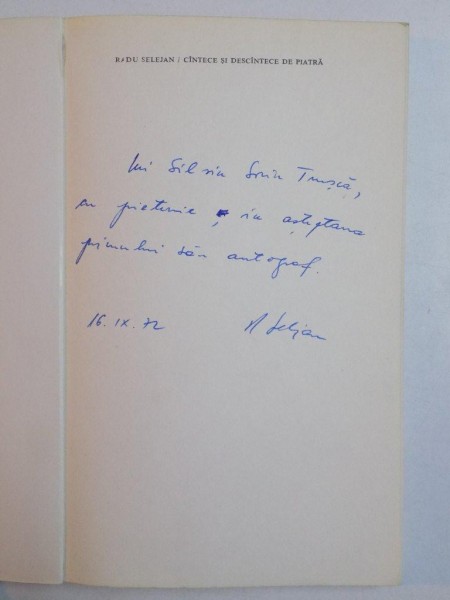 RADU SELEJAN / CÎNTECE ȘI DESCÎNTECE DE PIATRĂ
lui Silviu Sorin Trușcă,
cu prietenie și în așteptarea
primului său autograf.
16. IX. 72 R Selejan